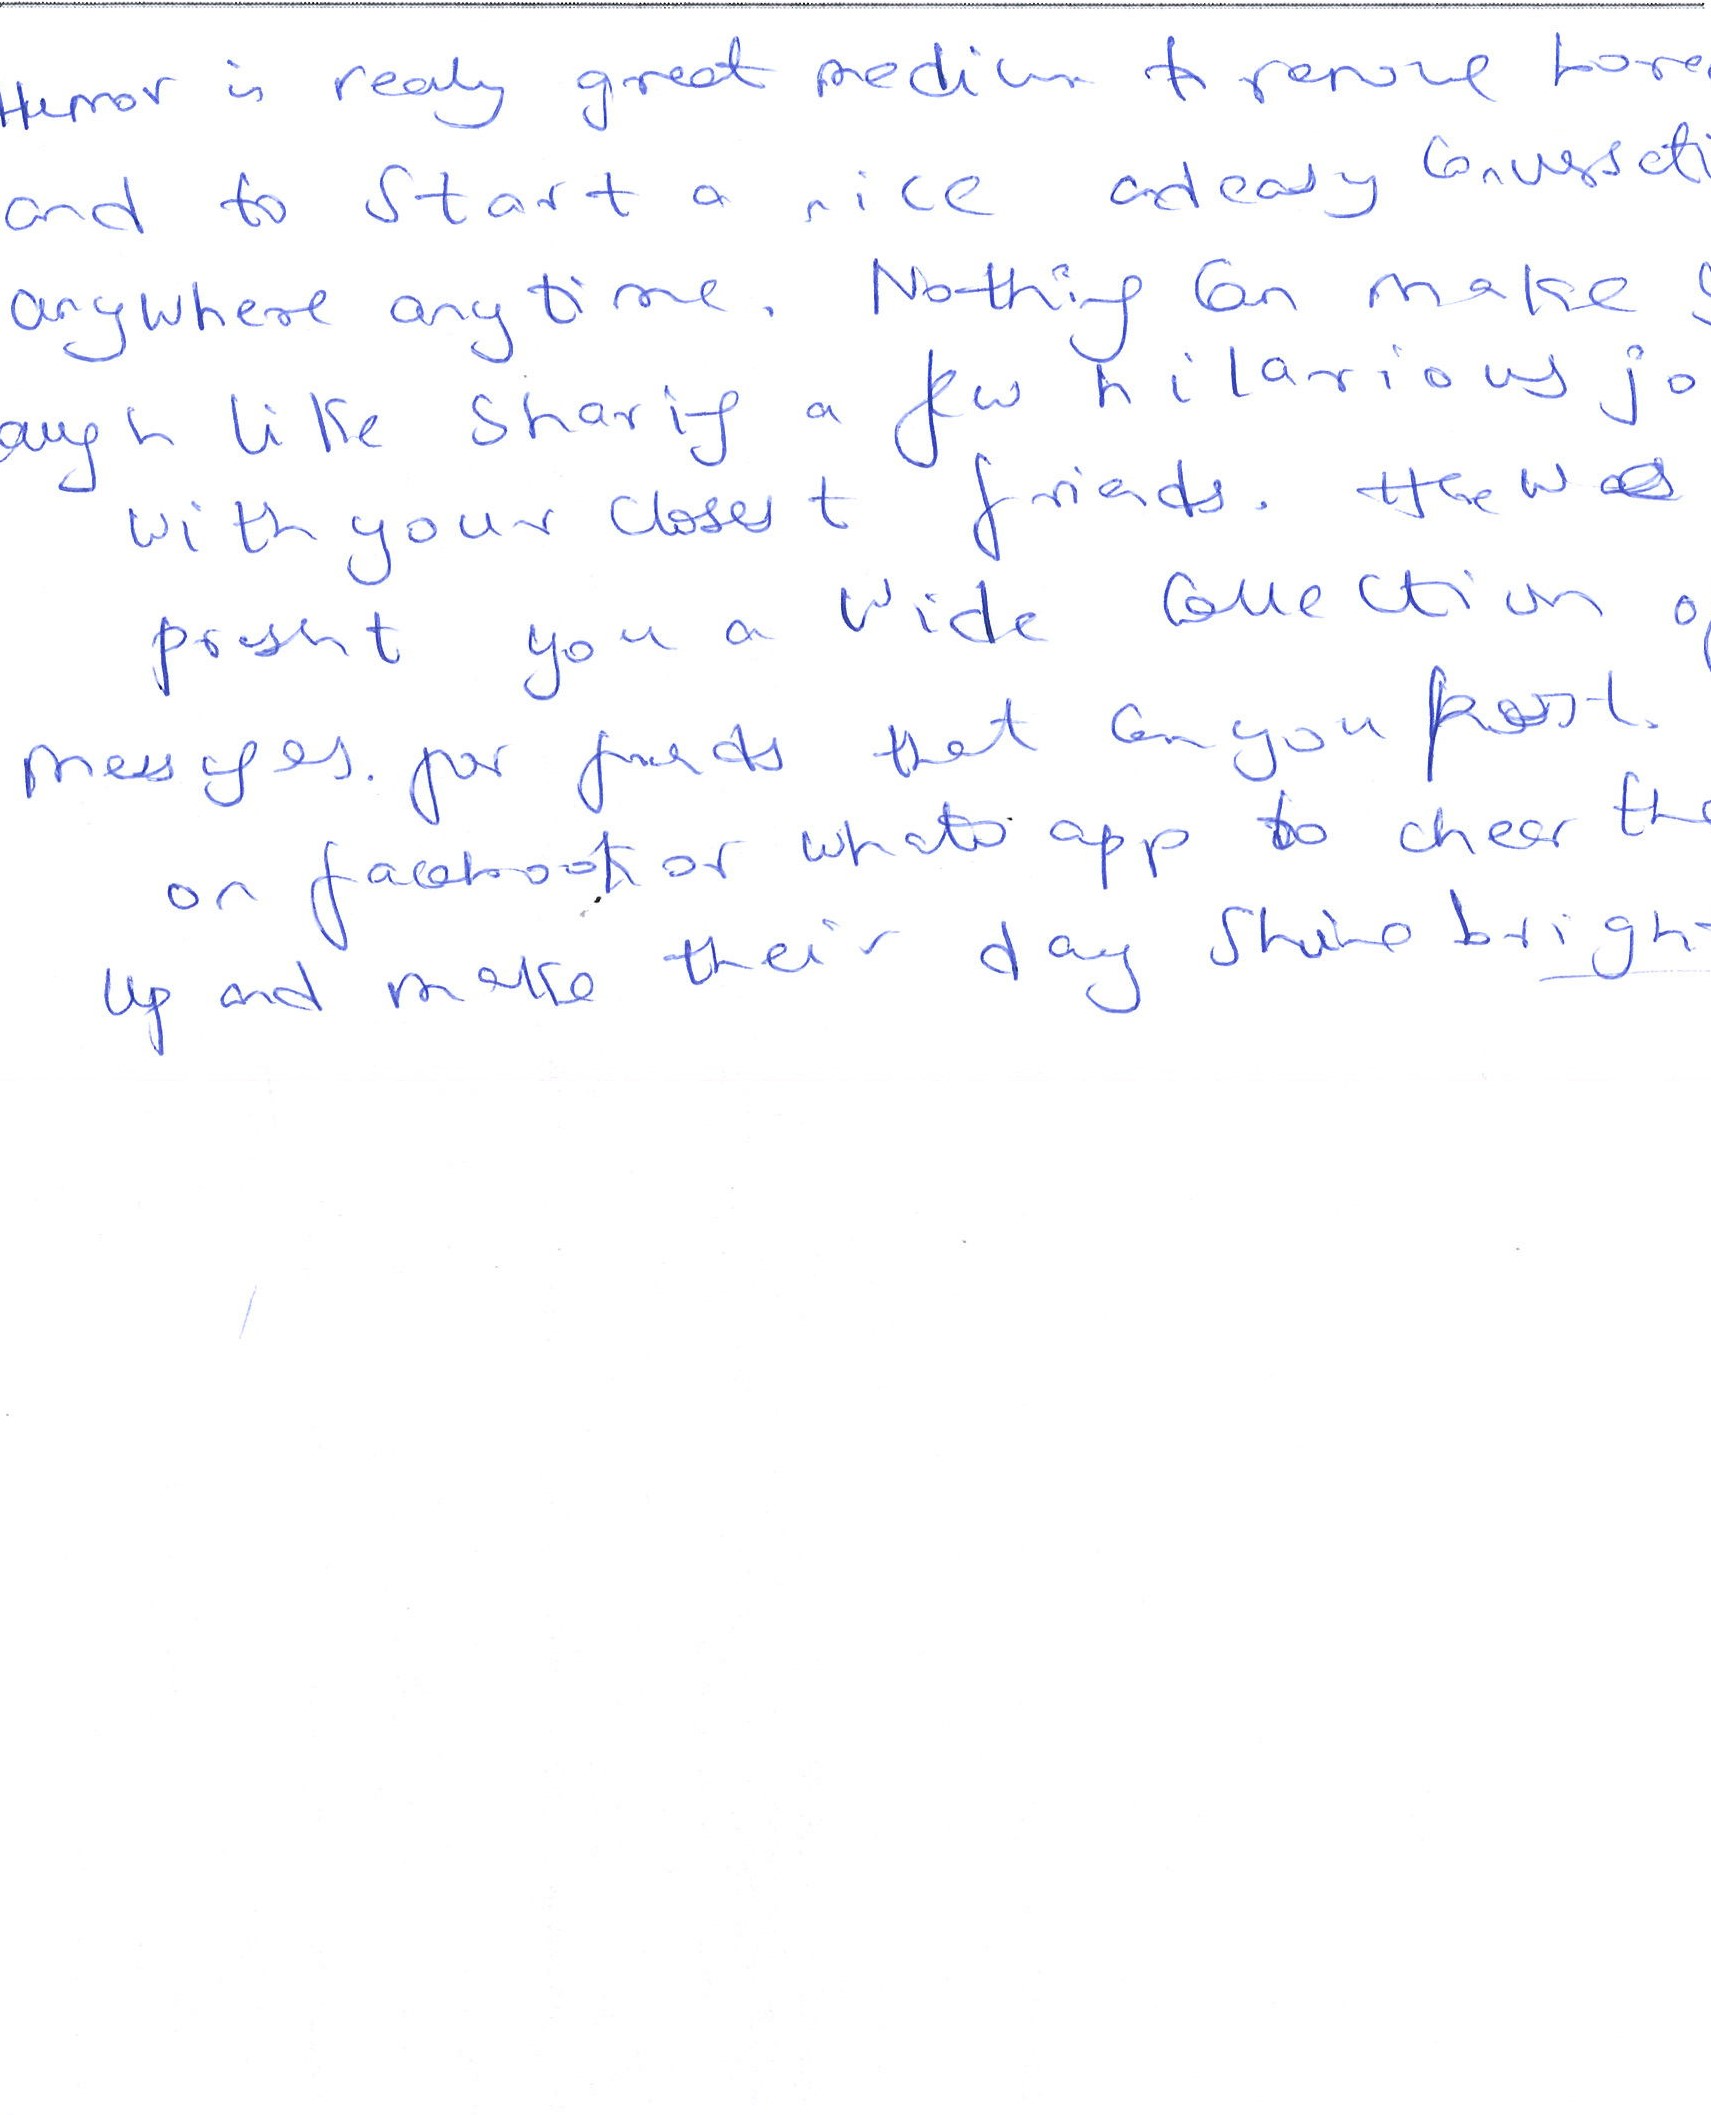 Humor is realy great medium to remove bore
and to start a nice and easy conversati
anywhere anytime. Nothing can make y
augh like sharing a few hilarious jo
with your closest friends. Here we
present you a wide collection of
messages. for friends that can you post.
on facebook or whats app to cheer the
up and make their day shine brigh